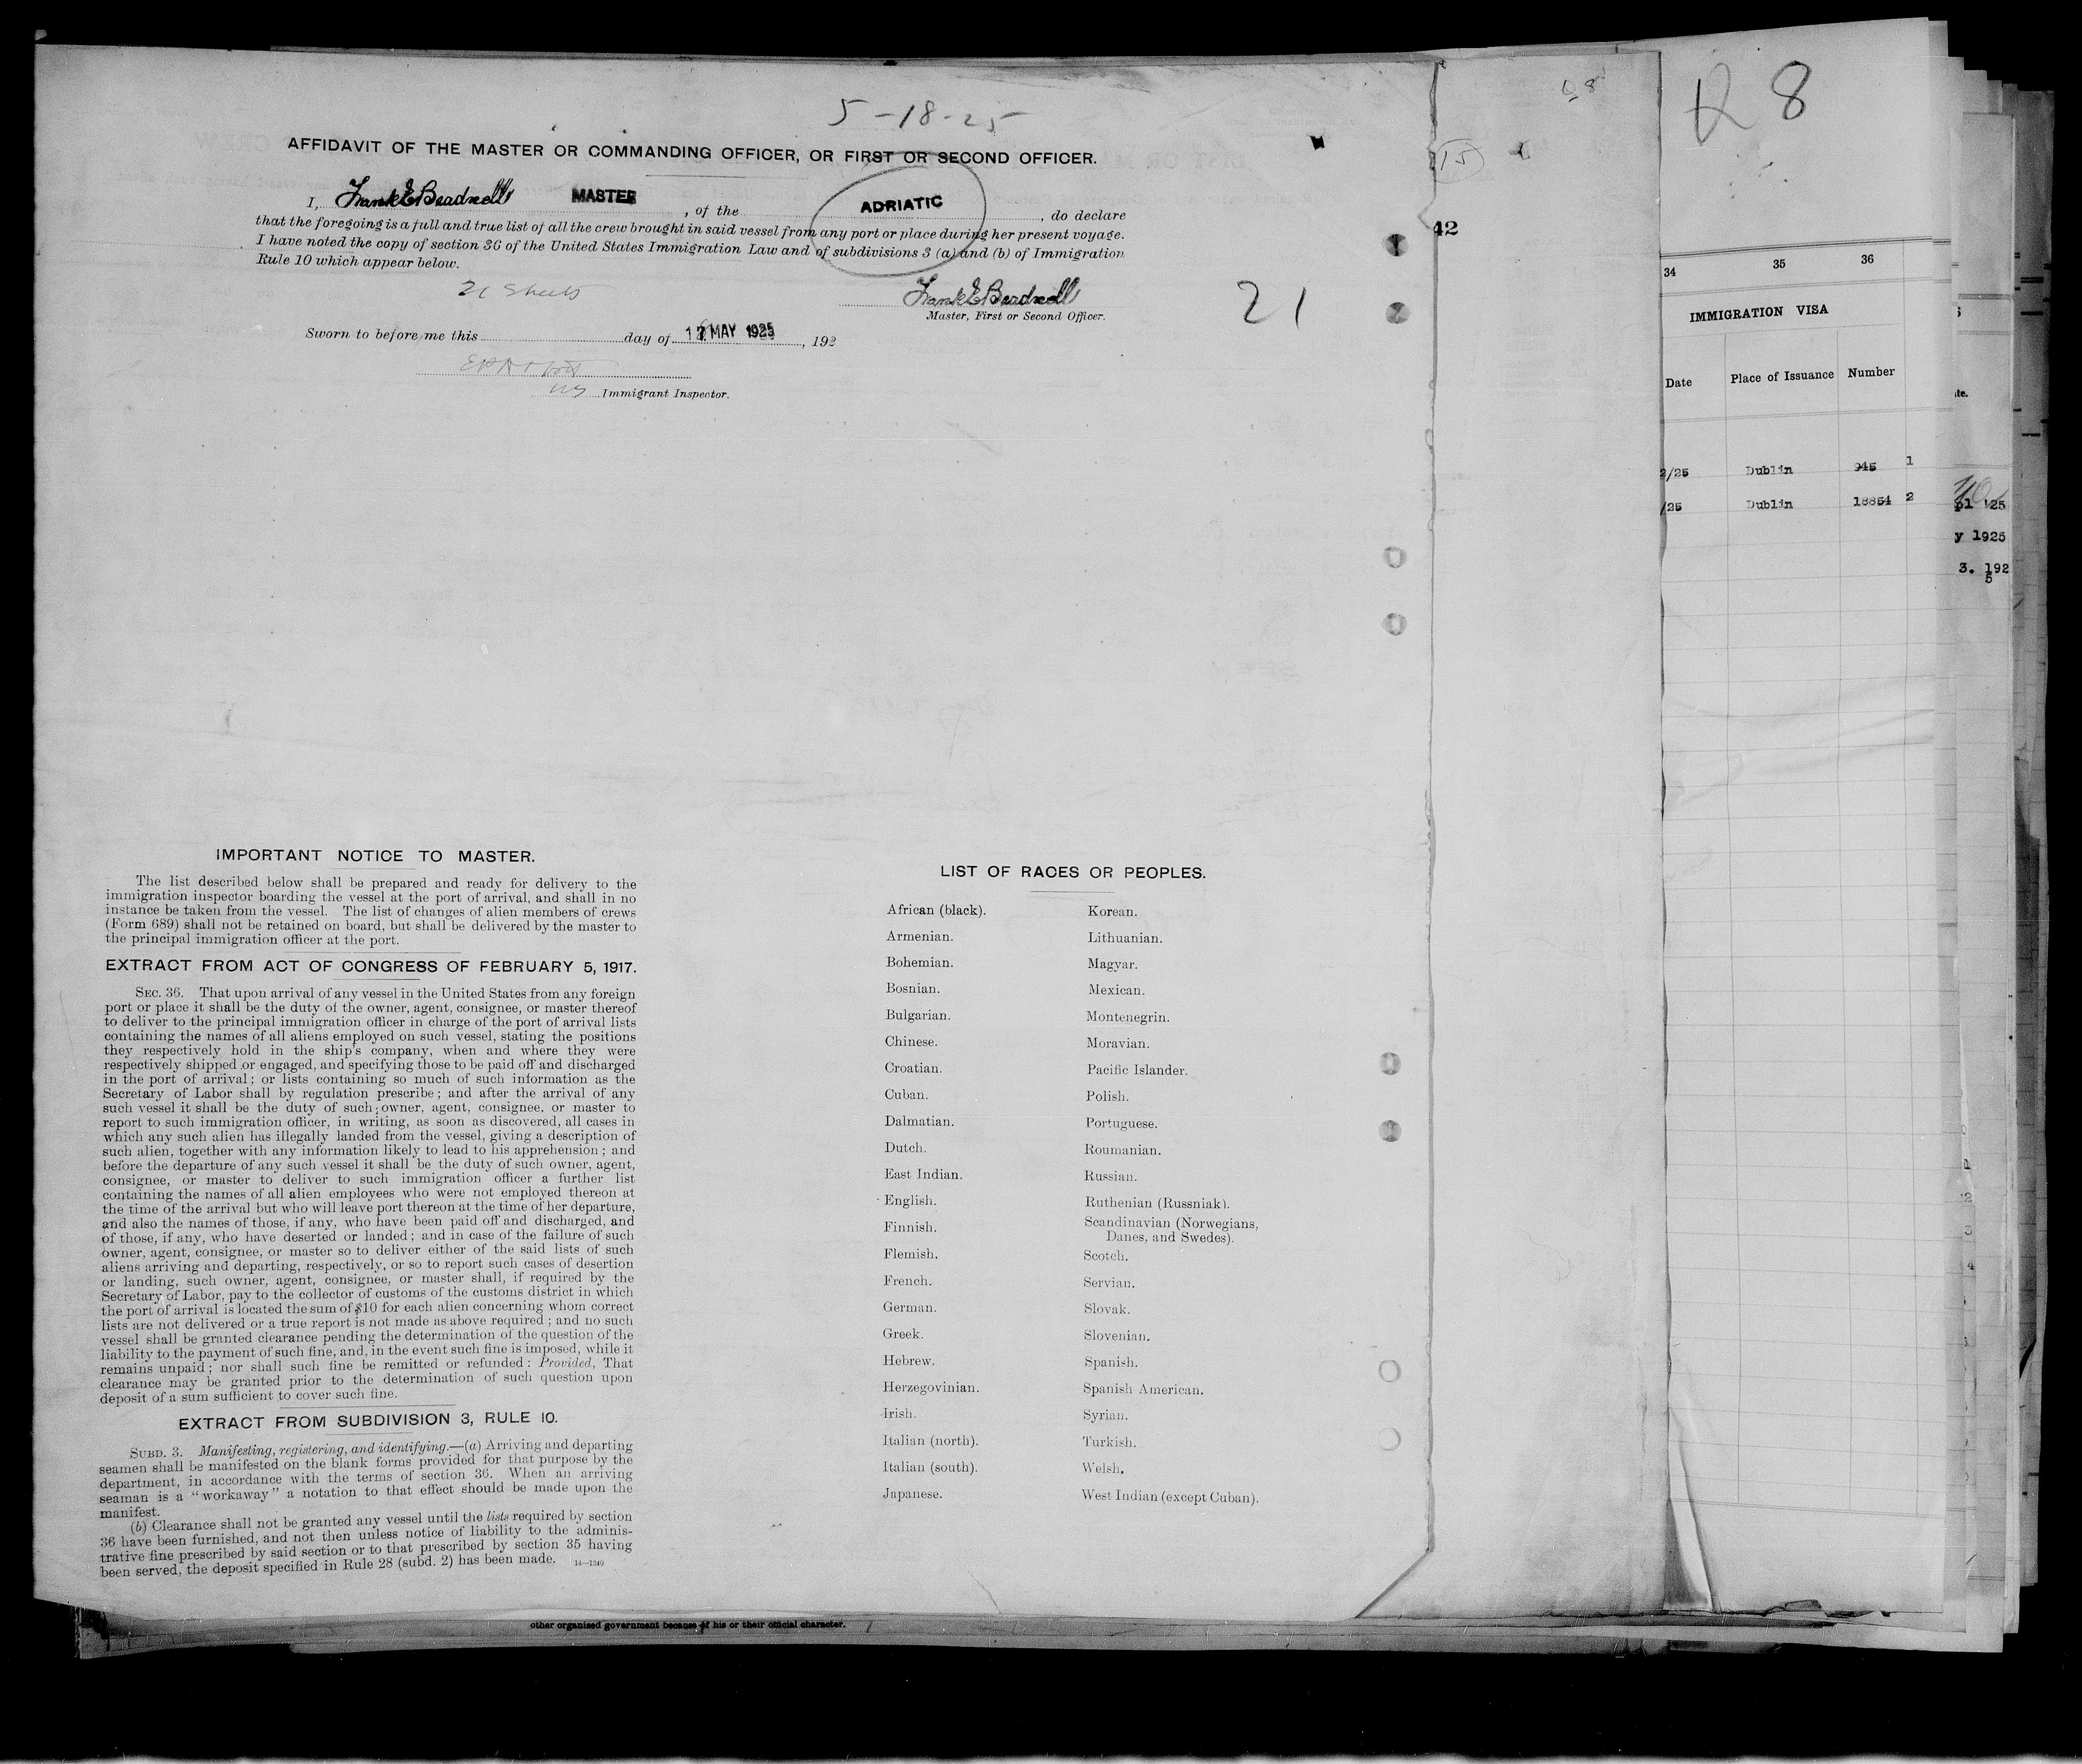 5-18-25
AFFIDAVIT OF THE MASTER OR COMMANDING OFFICER, OR FIRST OR SECOND OFFICER.
I, Frank E Beadnell MASTER, of the ADRIATIC, do declare
that the foregoing is a full and true list of all the crew brought in said vessel from any port or place during her present voyage.
I have noted the copy of section 36 of the United States Immigration Law and of subdivisions 3 (a) and (b) of Immigration
Rule 10 which appear below.
21 Sheets
Frank E Beadnell
Master, First or Second Officer.
21
Sworn to before me this day of MAY 1925, 192
Immigrant Inspector.
IMPORTANT NOTICE TO MASTER.
The list described below shall be prepared and ready for delivery to the
immigration inspector boarding the vessel at the port of arrival, and shall in no
instance be taken from the vessel. The list of changes of alien members of crews
(Form 689) shall not be retained on board, but shall be delivered by the master to
the principal immigration officer at the port.
EXTRACT FROM ACT OF CONGRESS OF FEBRUARY 5, 1917.
SEC. 36. That upon arrival of any vessel in the United States from any foreign
port or place it shall be the duty of the owner, agent, consignee, or master thereof
to deliver to the principal immigration officer in charge of the port of arrival lists
containing the names of all aliens employed on such vessel, stating the positions
they respectively hold in the ship's company, when and where they were
respectively shipped or engaged, and specifying those to be paid off and discharged
in the port of arrival; or lists containing so much of such information as the
Secretary of Labor shall by regulation prescribe; and after the arrival of any
such vessel it shall be the duty of such owner, agent, consignee, or master to
report to such immigration officer, in writing, as soon as discovered, all cases in
which any such alien has illegally landed from the vessel, giving a description of
such alien, together with any information likely to lead to his apprehension; and
before the departure of any such vessel it shall be the duty of such owner, agent,
consignee, or master to deliver to such immigration officer a further list
containing the names of all alien employees who were not employed thereon at
the time of the arrival but who will leave port thereon at the time of her departure,
and also the names of those, if any, who have been paid off and discharged, and
of those, if any, who have deserted or landed; and in case of the failure of such
owner, agent, consignee, or master so to deliver either of the said lists of such
aliens arriving and departing, respectively, or so to report such cases of desertion
or landing, such owner, agent, consignee, or master shall, if required by the
Secretary of Labor, pay to the collector of customs of the customs district in which
the port of arrival is located the sum of $10 for each alien concerning whom correct
lists are not delivered or a true report is not made as above required; and no such
vessel shall be granted clearance pending the determination of the question of the
liability to the payment of such fine, and, in the event such fine is imposed, while it
remains unpaid; nor shall such fine be remitted or refunded: Provided, That
clearance may be granted prior to the determination of such question upon
deposit of a sum sufficient to cover such fine.
EXTRACT FROM SUBDIVISION 3, RULE 10.
SUBD. 3. Manifesting, registering, and identifying.—(a) Arriving and departing
seamen shall be manifested on the blank forms provided for that purpose by the
department, in accordance with the terms of section 36. When an arriving
seaman is a "workaway" a notation to that effect should be made upon the
manifest.
(b) Clearance shall not be granted any vessel until the lists required by section
36 have been furnished, and not then unless notice of liability to the adminis-
trative fine prescribed by said section or to that prescribed by section 35 having
been served, the deposit specified in Rule 28 (subd. 2) has been made. 14—1240
LIST OF RACES OR PEOPLES.
African (black).
Armenian.
Bohemian.
Bosnian.
Bulgarian.
Chinese.
Croatian.
Cuban.
Dalmatian.
Dutch.
East Indian.
English.
Finnish.
Flemish.
French.
German.
Greek.
Hebrew.
Herzegovinian.
Irish.
Italian (north).
Italian (south).
Japanese.
Korean.
Lithuanian.
Magyar.
Mexican.
Montenegrin.
Moravian.
Pacific Islander.
Polish.
Portuguese.
Roumanian.
Russian.
Ruthenian (Russniak).
Scandinavian (Norwegians,
Danes, and Swedes).
Scotch.
Servian.
Slovak.
Slovenian.
Spanish.
Spanish American.
Syrian.
Turkish.
Welsh.
West Indian (except Cuban).
other organized government because of his or their official character.
15
42
34 35 36
IMMIGRATION VISA
Date Place of Issuance Number
2/25 Dublin 945 1
/25 Dublin 18854 2
te.
y 1925
3. 192
5